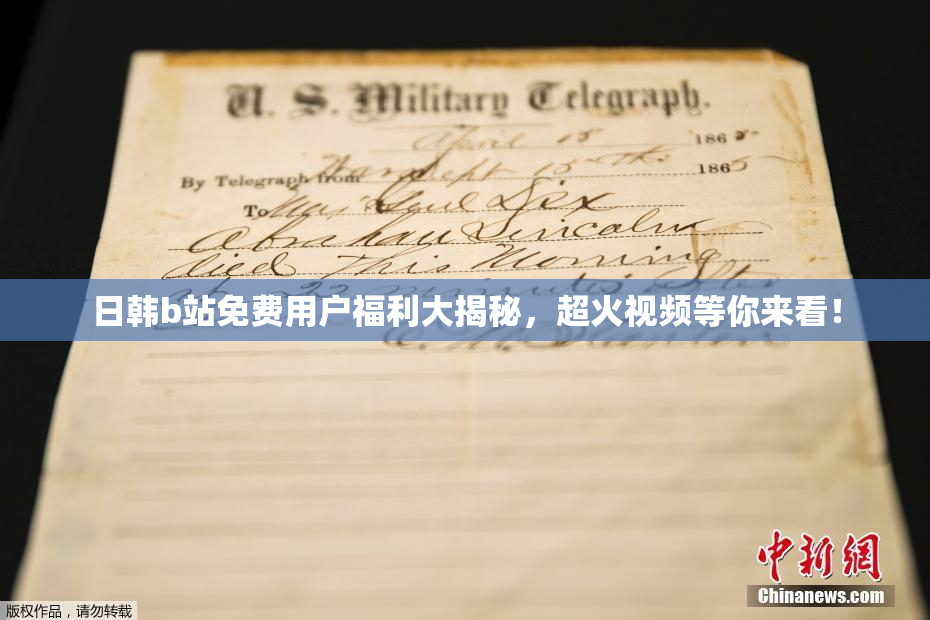 U. S. Military Telegraph.
April 15 1865
By Telegraph from War Dept 15th 1865
To Maj Genl Dix
Abraham Lincoln
died This Morning
at 22 minutes after
日韩b站免费用户福利大揭秘，超火视频等你来看！
E. M. Stanton
中新网
Chinanews.com
版权作品，请勿转载